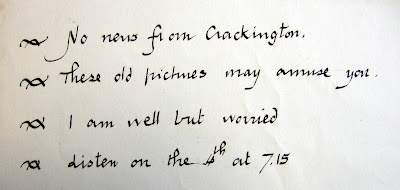 No news from Crackington.
These old pictures may amuse you.
I am well but worried
Listen on the 4th at 7.15